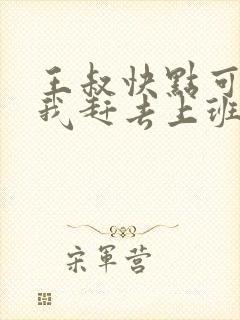 王叔快點可
我赶去上班
宋軍营